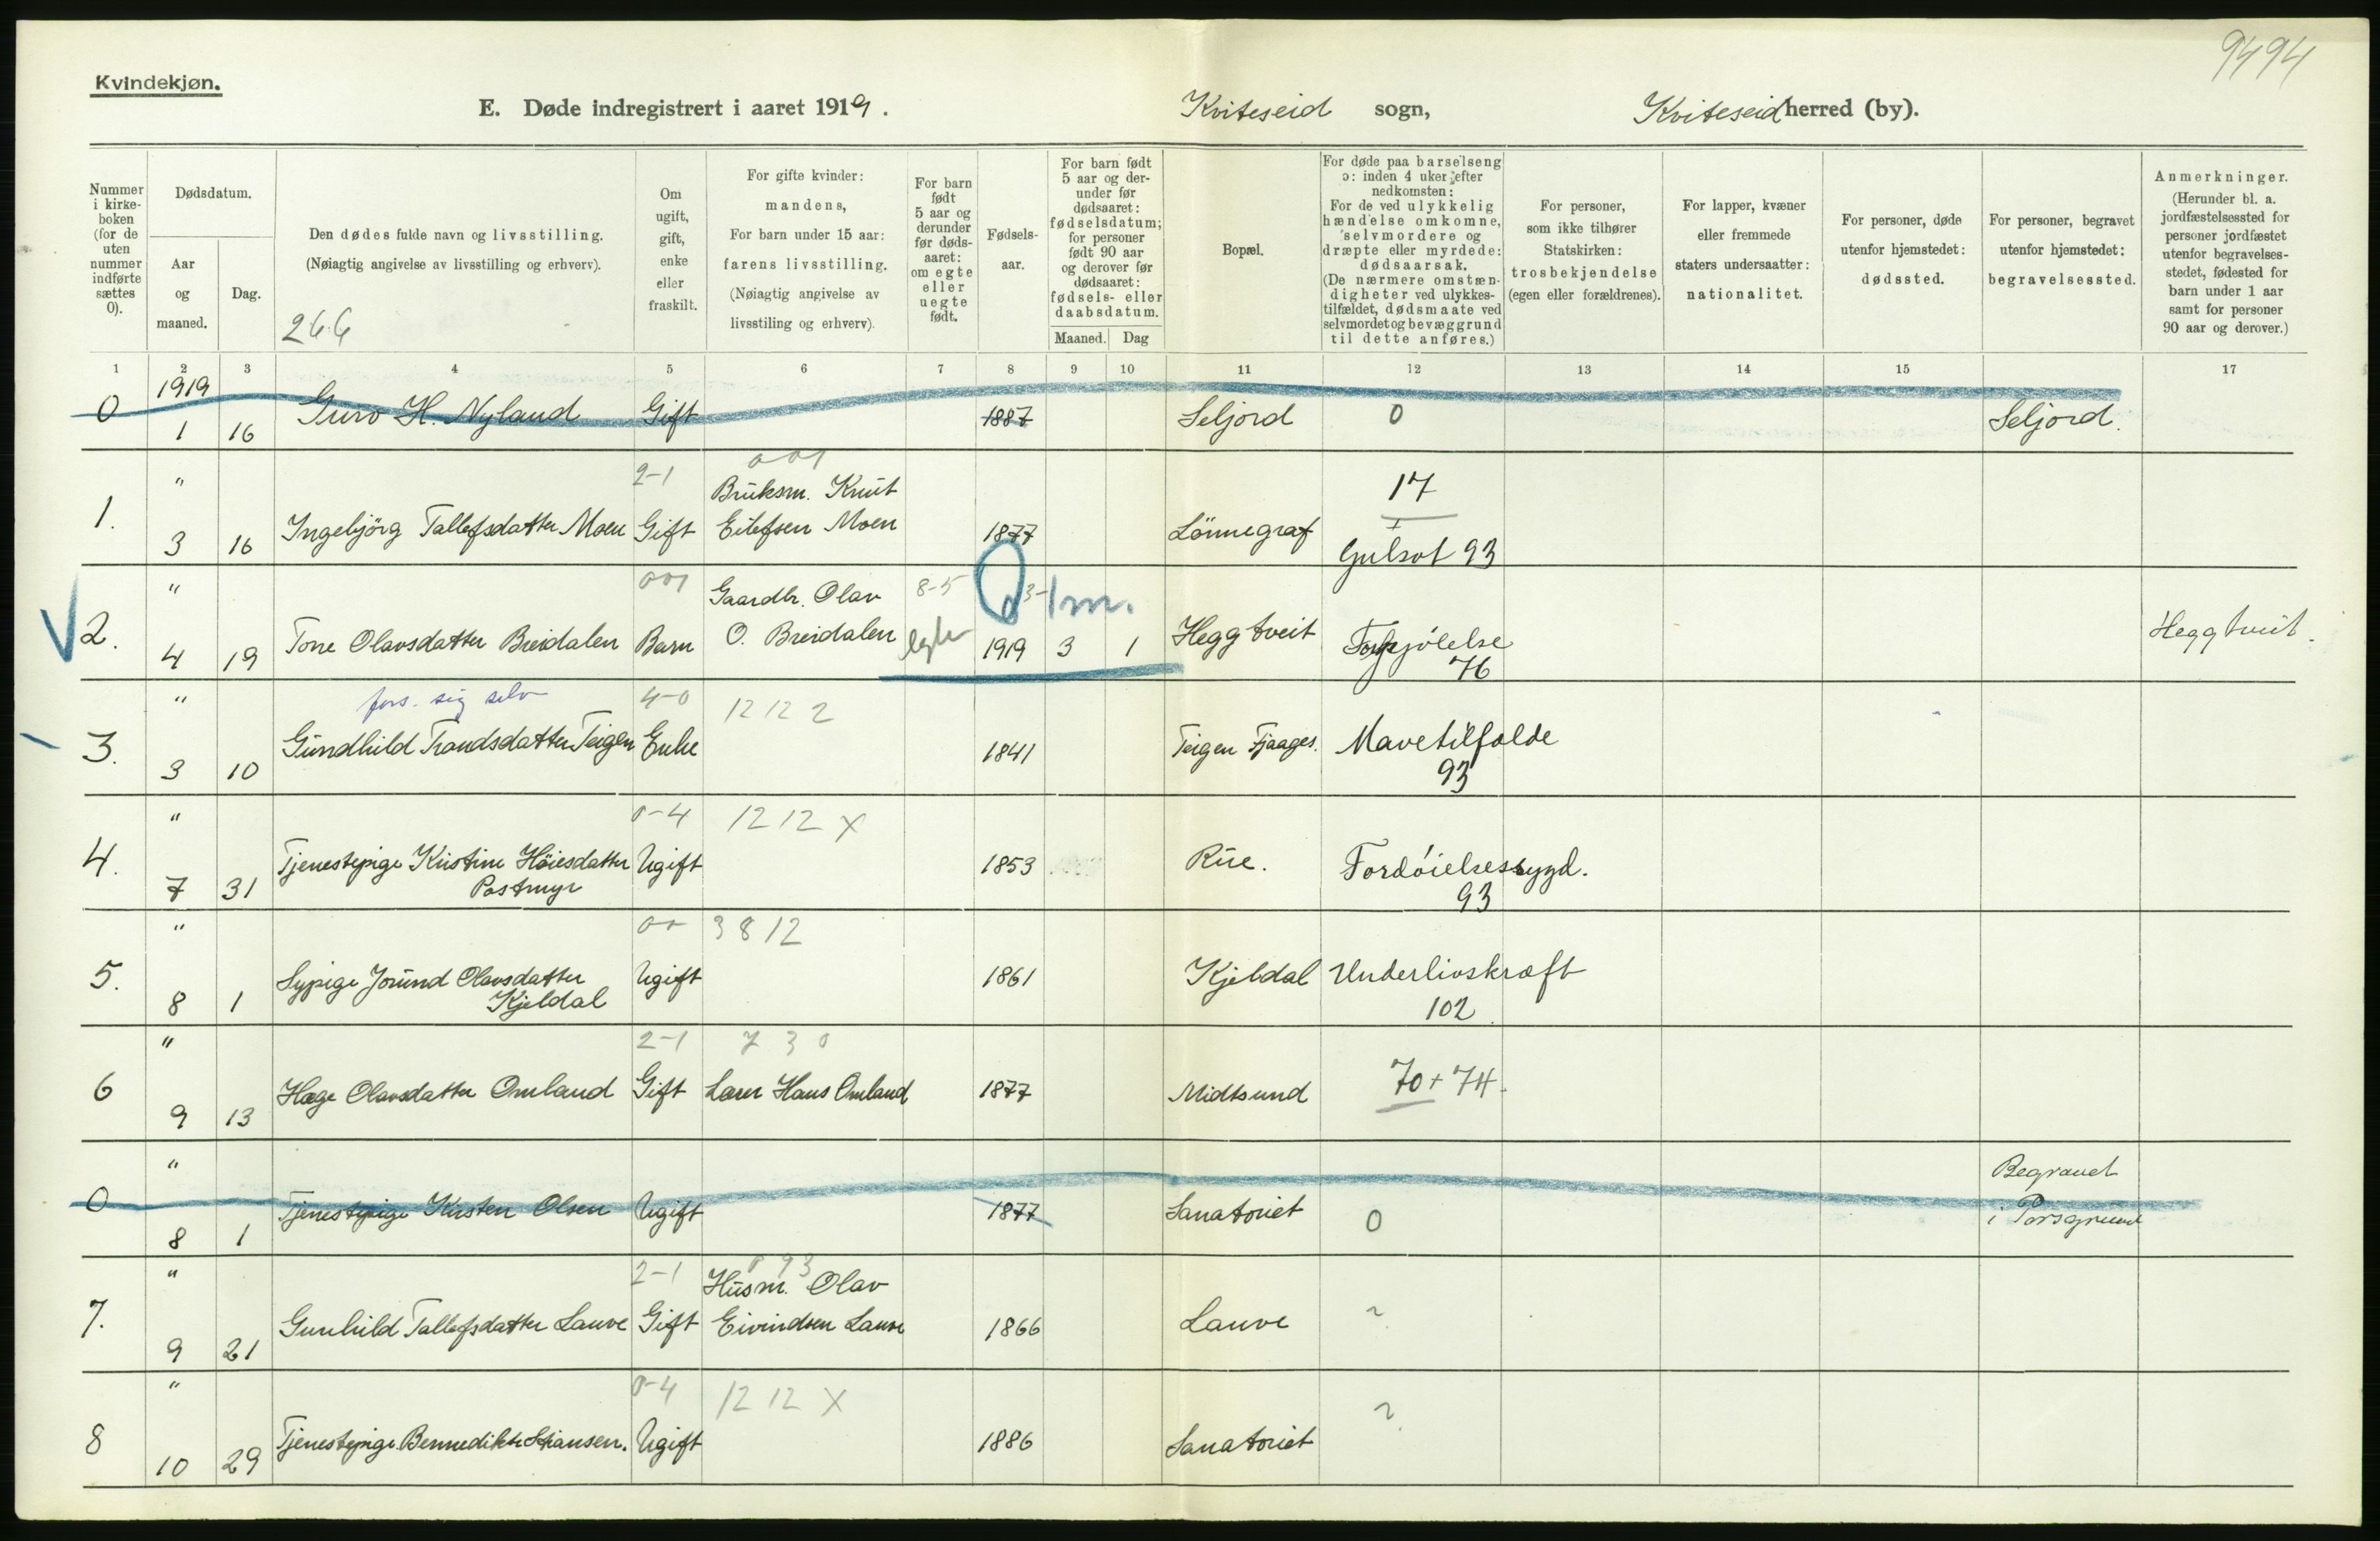 9494
Kvindekjøn.
E. Døde indregistrert i aaret 1919.
Kviteseid sogn,
Kviteseid herred (by).
Nummer
i kirke-
boken
(for de
uten
nummer
indførte
sættes
0).
Dødsdatum.
Aar
og
maaned.
Dag.
Den dødes fulde navn og livsstilling.
(Nøiagtig angivelse av livsstilling og erhverv).
266
Om
ugift,
gift,
enke
eller
fraskilt.
For gifte kvinder:
mandens,
For barn under 15 aar:
farens livsstilling.
(Nøiagtig angivelse av
livsstiling og erhverv).
For barn
født
5 aar og
derunder
før døds-
aaret:
om egte
eller
uegte
født.
Fødsels-
aar.
For barn født
5 aar og der-
under før
dødsaaret:
fødselsdatum;
for personer
født 90 aar
og derover før
dødsaaret:
fødsels- eller
daabsdatum.
Maaned. Dag
Bopæl.
For døde paa barselseng
ɔ: inden 4 uker efter
nedkomsten:
For de ved ulykkelig
hændelse omkomne,
selvmordere og
dræpte eller myrdede:
dødsaarsak.
(De nærmere omstæn-
digheter ved ulykkes-
tilfældet, dødsmaate ved
selvmordet og bevæggrund
til dette anføres.)
For personer,
som ikke tilhører
Statskirken:
trosbekjendelse
(egen eller forældrenes).
For lapper, kvæner
eller fremmede
staters undersaatter:
nationalitet.
For personer, døde
utenfor hjemstedet:
dødssted.
For personer, begravet
utenfor hjemstedet:
begravelsessted.
Anmerkninger.
(Herunder bl. a.
jordfæstelsessted for
personer jordfæstet
utenfor begravelses-
stedet, fødested for
barn under 1 aar
samt for personer
90 aar og derover.)
1 2 3 4 5 6 7 8 9 10 11 12 13 14 15 17
1919
0 1 16 Guro H. Nyland Gift 1887 Seljord 0 Seljord.
2-1 001
" Bruksm. Knut 17
1. 3 16 Ingebjörg Tallefsdatter Moen Gift Eilefsen Moen 1877 Lönnegraf
Gulsot 93
" 001 Gaardbr. Olav 8-5 3- 1m.
2. 4 19 Tone Olavsdatter Breidalen Barn O. Breidalen egte 1919 3 1 Heggtveit Forkjölelse Heggtveit.
76
" fors. sig selv 4-0 12 12 2
3. 3 10 Gundhild Trondsdatter Teigen Enke 1841 Teigen Fjaages. Mavetilfælde
93
" 0-4 12 12 X
4. 7 31 Tjenestepige Kristine Höiesdatter Ugift 1853 Rue. Fordöielsessygd.
Postmyr
93
" 3 8 12
5. 8 1 Sypige Jorund Olavsdatter Ugift 1861 Kjeldal Underlivskræft
Kjeldal
102
" 2-1 7 3 0
6 9 13 Hæge Olavsdatter Omland Gift Lærer Hans Omland 1877 Midtsund 70 + 74.
"
0 8 1 Tjenestepige Kirsten Olsen Ugift 1877 Sanatoriet 0 Begravet
i Porsgrund
" 2-1 0 93
Husm. Olav
7. 9 21 Gunhild Tallefsdatter Lauve Gift Eivindsen Lauve 1866 Lauve ?
" 0-4 12 12 X
8 10 29 Tjenestepige Bennedikte Hansen. Ugift 1886 Sanatoriet ?